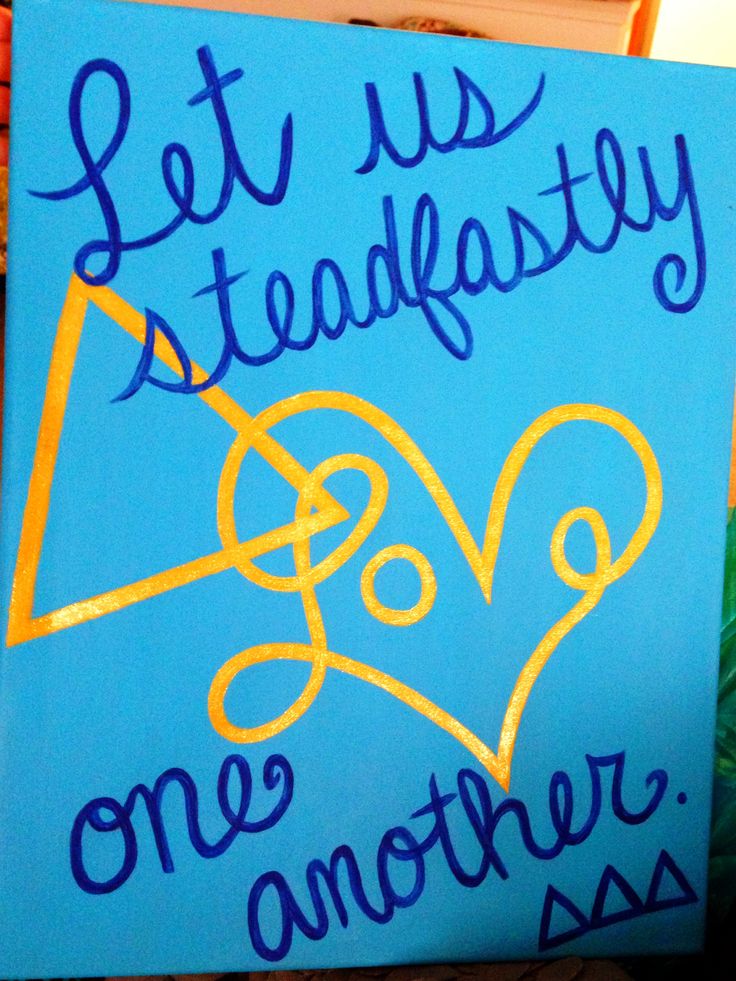 Let us
steadfastly
Love
one
another.
ΔΔΔ